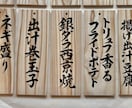 トリュフ香る
フライドポテト
銀ダラ西京焼
出汁巻玉子
ネギ盛り